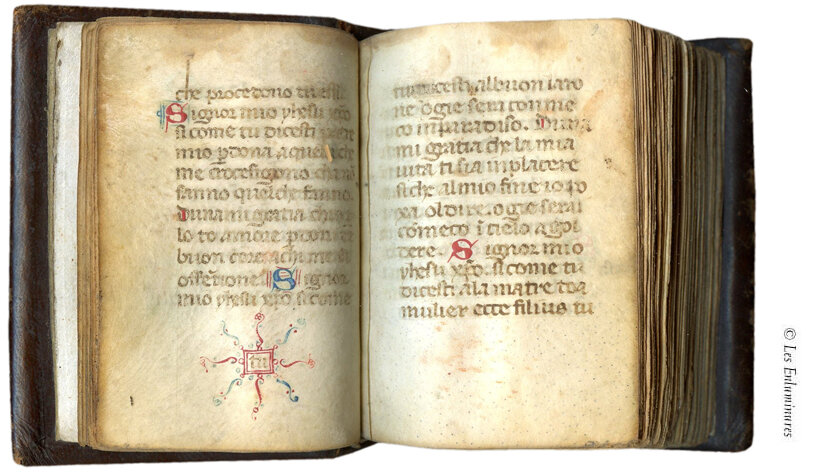 che procedono tu
Signor mio yhesu xpo
si come tu dicesti
mio pdona a quelli che
me crocefigono che no
sanno quel che fanno.
Dunami gratia chio
lo to amore pdoni
buon core achi me
offensiones Signor
mio yhesu xpo si come
tu
dicesti al buon latro
ne ogie serai con me
co in paradiso. Duna
mi gratia che la mia
uita ti sia in placere
si che al mio fine io po
oldire. ogie serai
come co i cielo a gol
dere. Signor mio
yhesu xpo. si come tu
dicesti a la matre toa
mulier ecce filius tu
© Les Enluminures